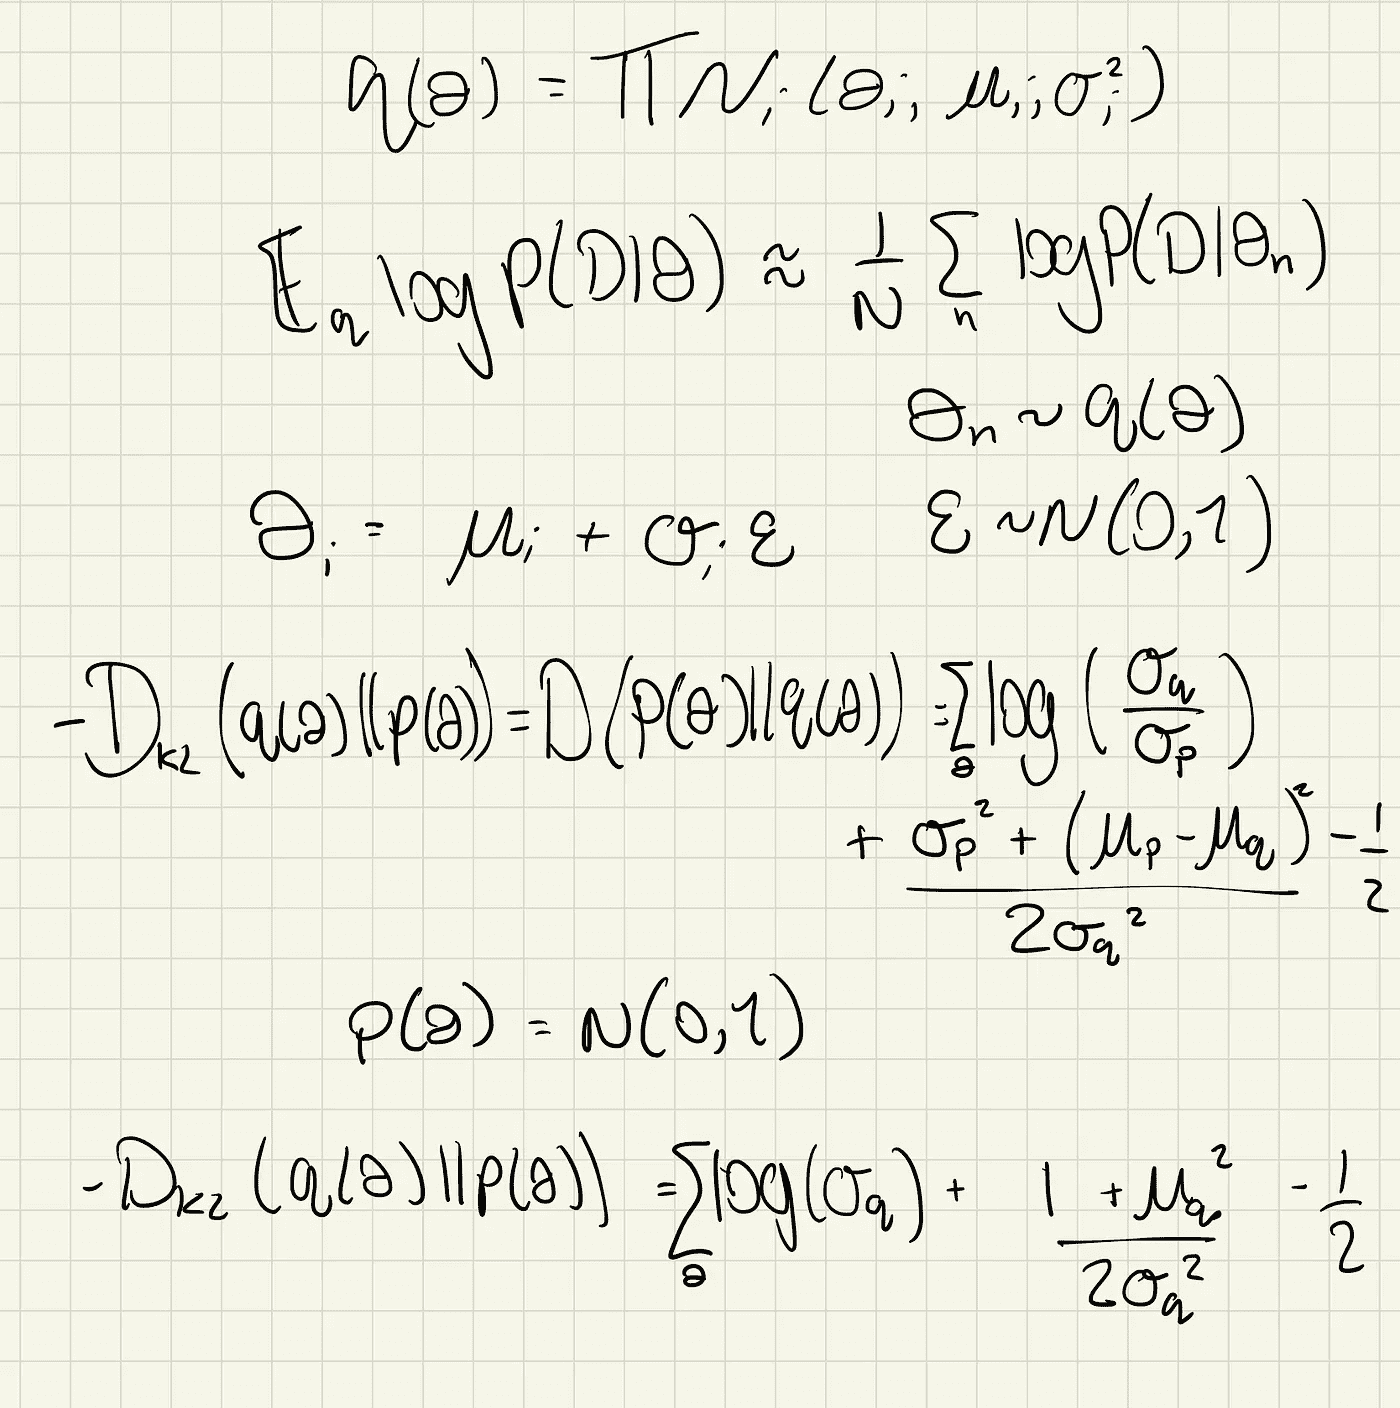 q(θ) = ΠN_i(θ_i; μ_i; σ_i²)
𝔼_q log P(D|θ) ≈ 1/N Σ_n log P(D|θ_n)
θ_n ~ q(θ)
θ_i = μ_i + σ_i · ε ε ~ N(0,1)
-D_KL (q(θ)||p(θ)) = D(P(θ)||q(θ)) = Σ_θ log (σ_q/σ_p)
+ (σ_p² + (μ_p - μ_q)²)/(2σ_q²) - 1/2
p(θ) = N(0,1)
-D_KL (q(θ)||p(θ)) = Σ_θ log(σ_q) + (1 + μ_q²)/(2σ_q²) - 1/2